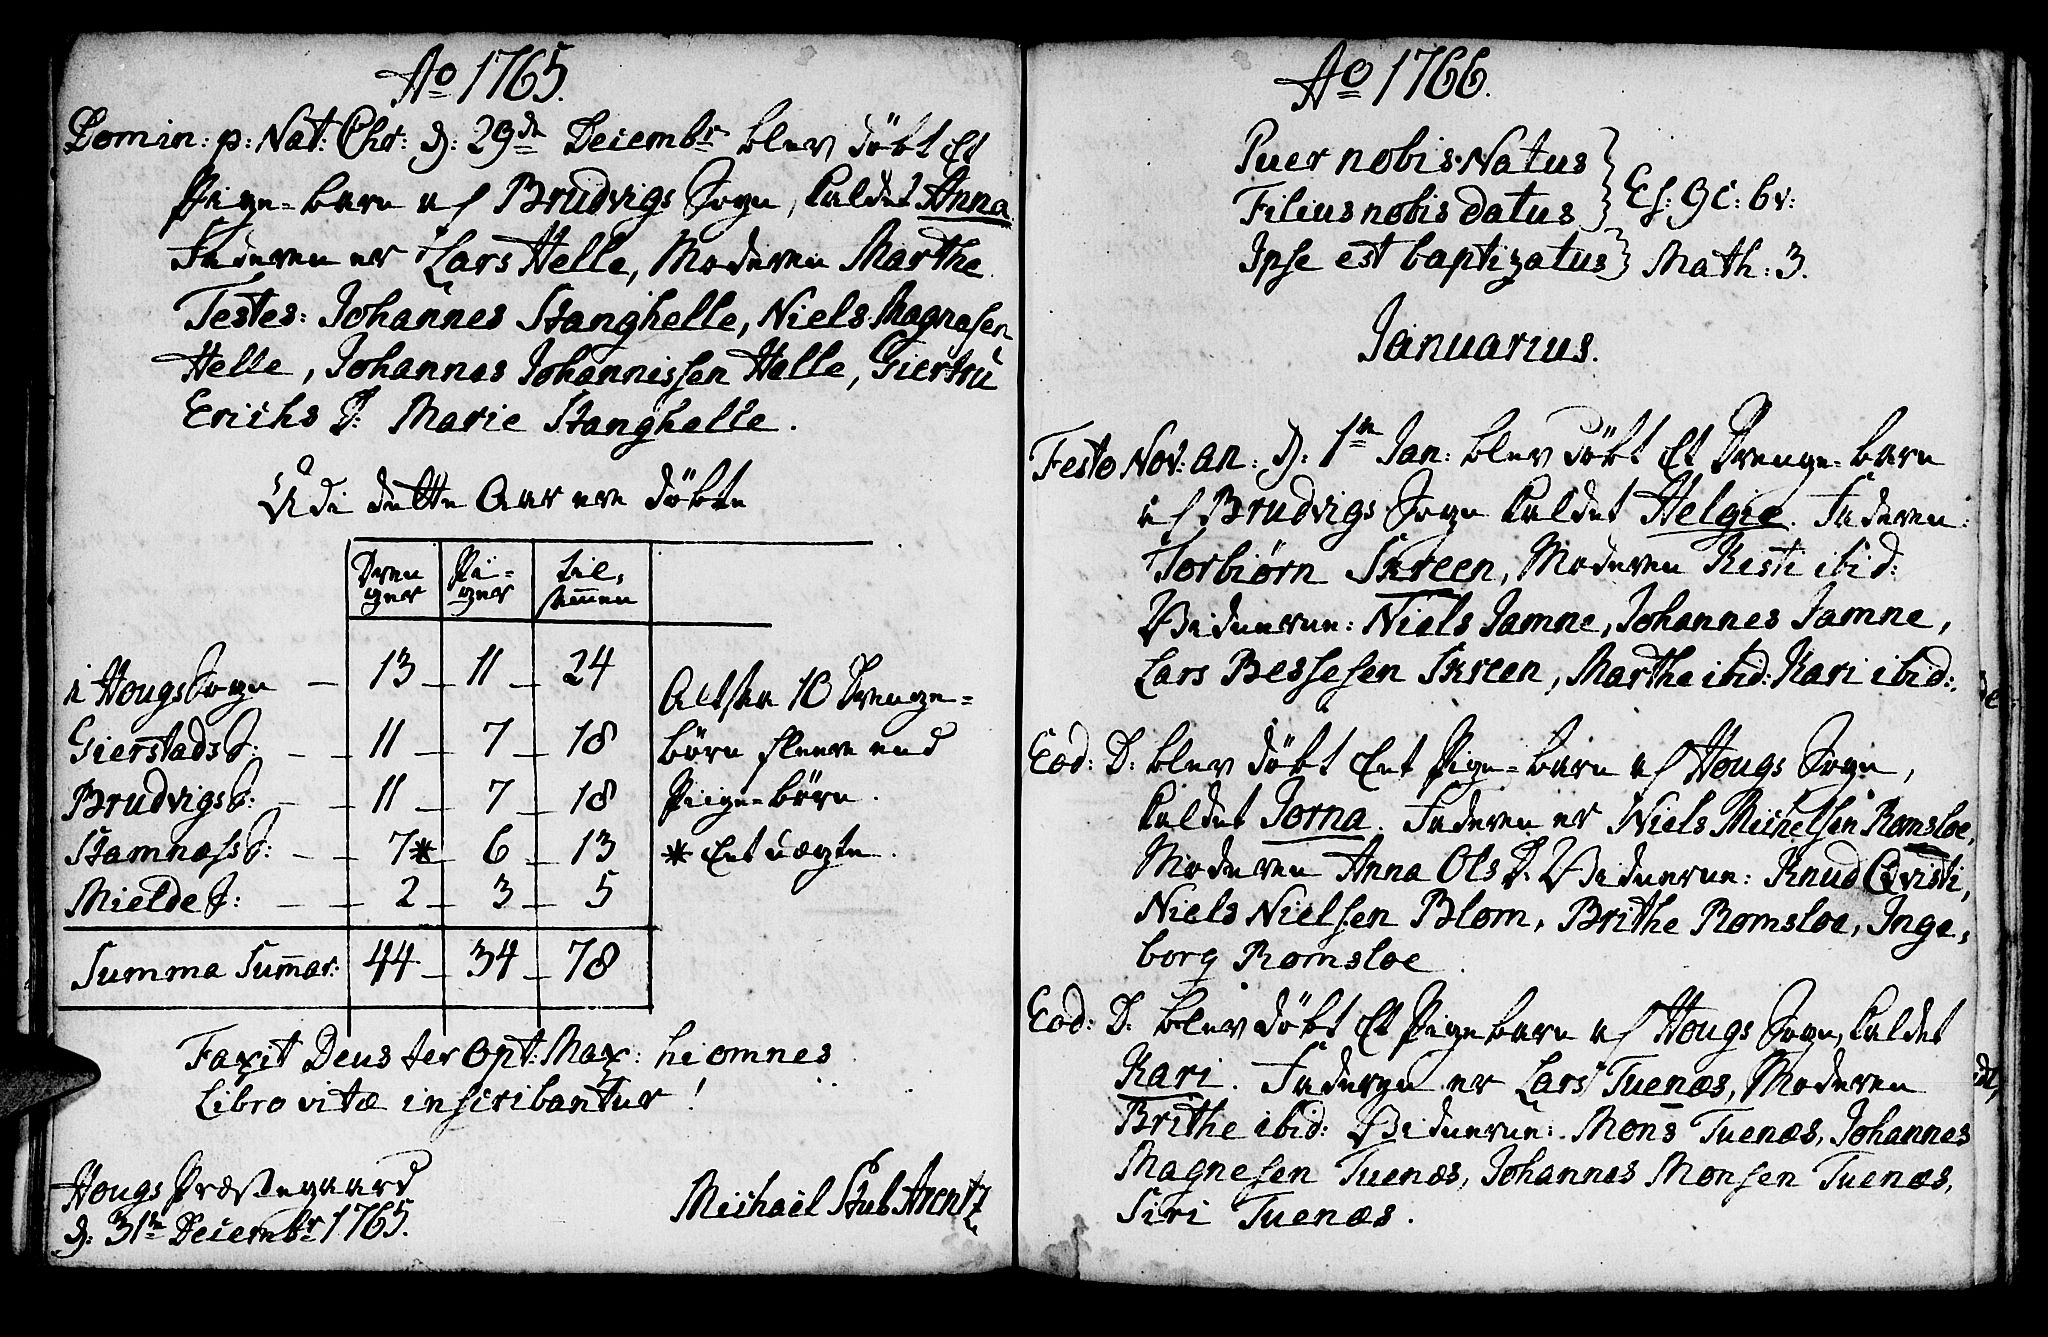 Ao 1765.
Domin: p: Nat: Chr: d: 29de Decembr blev døbt Et
Pige-barn af Brudvigs Sogn, kaldet Anna
Faderen er Lars Helle, Moderen Marthe
Testes: Johannes Stanghelle, Niels Magnesen
Helle, Johannes Johannissen Helle, Giertru
Erichs D: Marie Stanghelle.
Udi dette Aar ere døbte
Dren Pi- Til,
ger ger sam̄en
i Hougs Sogn – 13 – 11 – 24
Gierstads S: – – 11 – 7 – 18
Brudvigs S: – – 11 – 7 – 18
Stamnæs S: – – 7* – 6 – 13
Mielde S: – – 2 – 3 – 5
Summa Sum̄ar: 44 – 34 – 78
Altsaa 10 Drenge-
børn fleere end
Piige-børn.
* Eet uægte.
Faxit Deus ter Opt: Max: hi omnes
Libro vitæ inscribantur!
Hougs Præstegaard
d: 31te Decembr 1765.
Michael Stub Arentz
Ao 1766.
Puer nobis Natus
Filius nobis datus } Es: 9 c: 6 v:
Ipse est baptizatus } Math: 3.
Januarius.
Festo Nov: an: d: 1te Jan: blev døbt Et Drenge-barn
af Brudvigs Sogn kaldet Helgie. Faderen:
Torbiørn Skreen, Moderen Kisti ibid:
Vidnerne: Niels Jamne, Johannes Jamne,
Lars Bessesen Skreen, Marthe ibid: Kari ibid:
Eod: D: blev døbt Eet Pige-barn af Hougs Sogn,
kaldet Jorna. Faderen er Niels Michelsen Romsloe,
Moderen Anna Ols D. Vidnerne: Knud Qvisti,
Niels Nielsen Blom, Brithe Romsloe, Inge,
borg Romsloe.
Eod: D: blev døbt Et Pige barn af Hougs Sogn, kaldet
Kari. Faderen er Lars Tuenæs, Moderen
Brithe ibid: Vidnerne: Mons Tuenæs, Johannes
Magnesen Tuenæs, Johannes Monsen Tuenæs,
Siri Tuenæs.